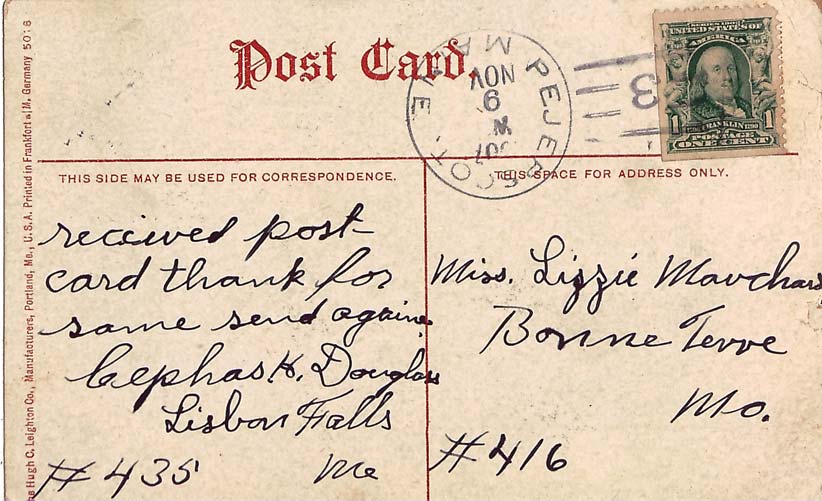 Post Card.
PEJEPSCOT MAINE
NOV
9
M
07
3
SERIES 1902
UNITED STATES OF
AMERICA
1 FRANKLIN 1
POSTAGE
ONE CENT
THIS SIDE MAY BE USED FOR CORRESPONDENCE.
THIS SPACE FOR ADDRESS ONLY.
received post-
card thank for
same send againe
Cephas K. Douglass
Lisbon Falls
Me
#435
Miss. Lizzie
Bonne Terre
Mo.
#416
Hugh C. Leighton Co., Manufacturers, Portland, Me., U.S.A. Printed in Frankfort a/M. Germany 5018